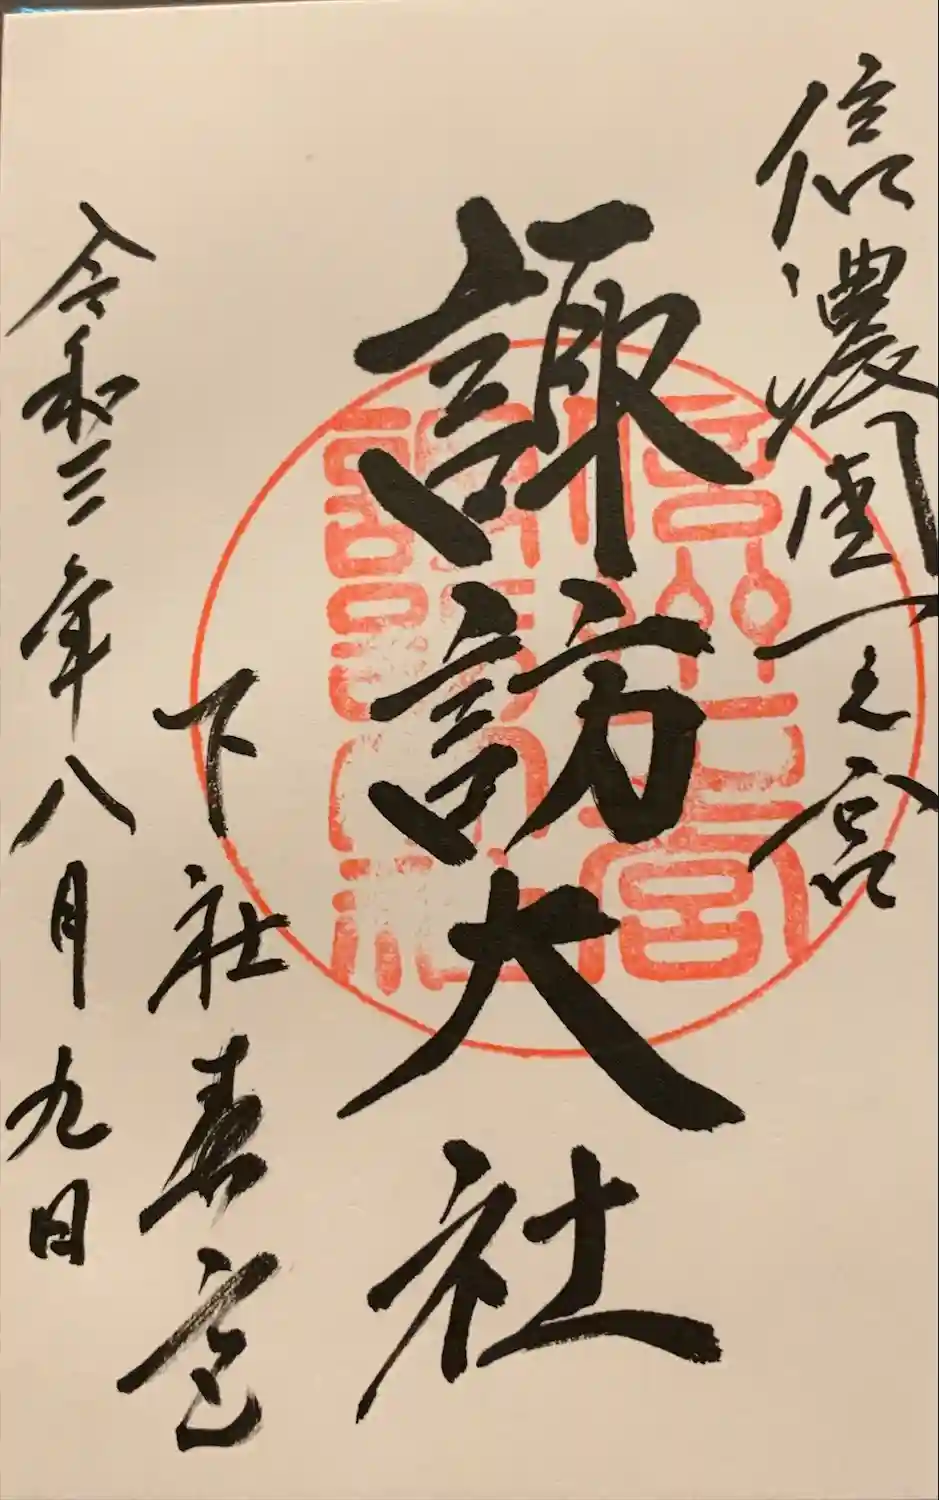 信濃國一之宮
諏訪大社
下社春宮
令和三年八月九日
諏訪大社